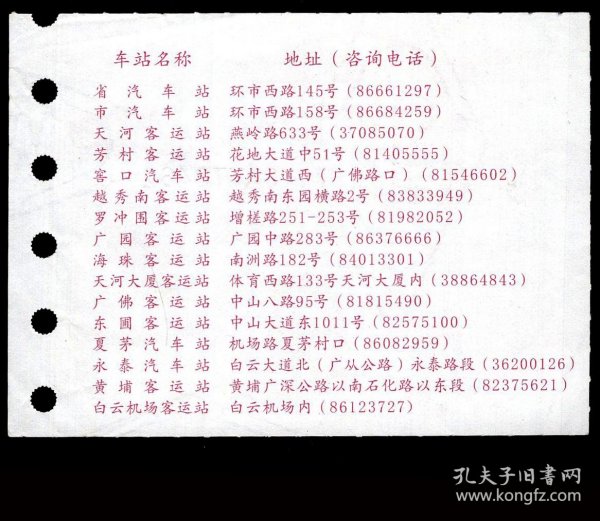 车站名称 地址(咨询电话)
省汽车站 环市西路145号(86661297)
市汽车站 环市西路158号(86684259)
天河客运站 燕岭路633号(37085070)
芳村客运站 花地大道中51号(81405555)
窖口汽车站 芳村大道西(广佛路口)(81546602)
越秀南客运站 越秀南东园横路2号(83833949)
罗冲围客运站 增槎路251-253号(81982052)
广园客运站 广园中路283号(86376666)
海珠客运站 南洲路182号(84013301)
天河大厦客运站 体育西路133号天河大厦内(38864843)
广佛客运站 中山八路95号(81815490)
东圃客运站 中山大道东1011号(82575100)
夏茅汽车站 机场路夏茅村口(86082959)
永泰汽车站 白云大道北(广从公路)永泰路段(36200126)
黄埔客运站 黄埔广深公路以南石化路以东段(82375621)
白云机场客运站 白云机场内(86123727)
孔夫子旧书网
www.kongfz.com